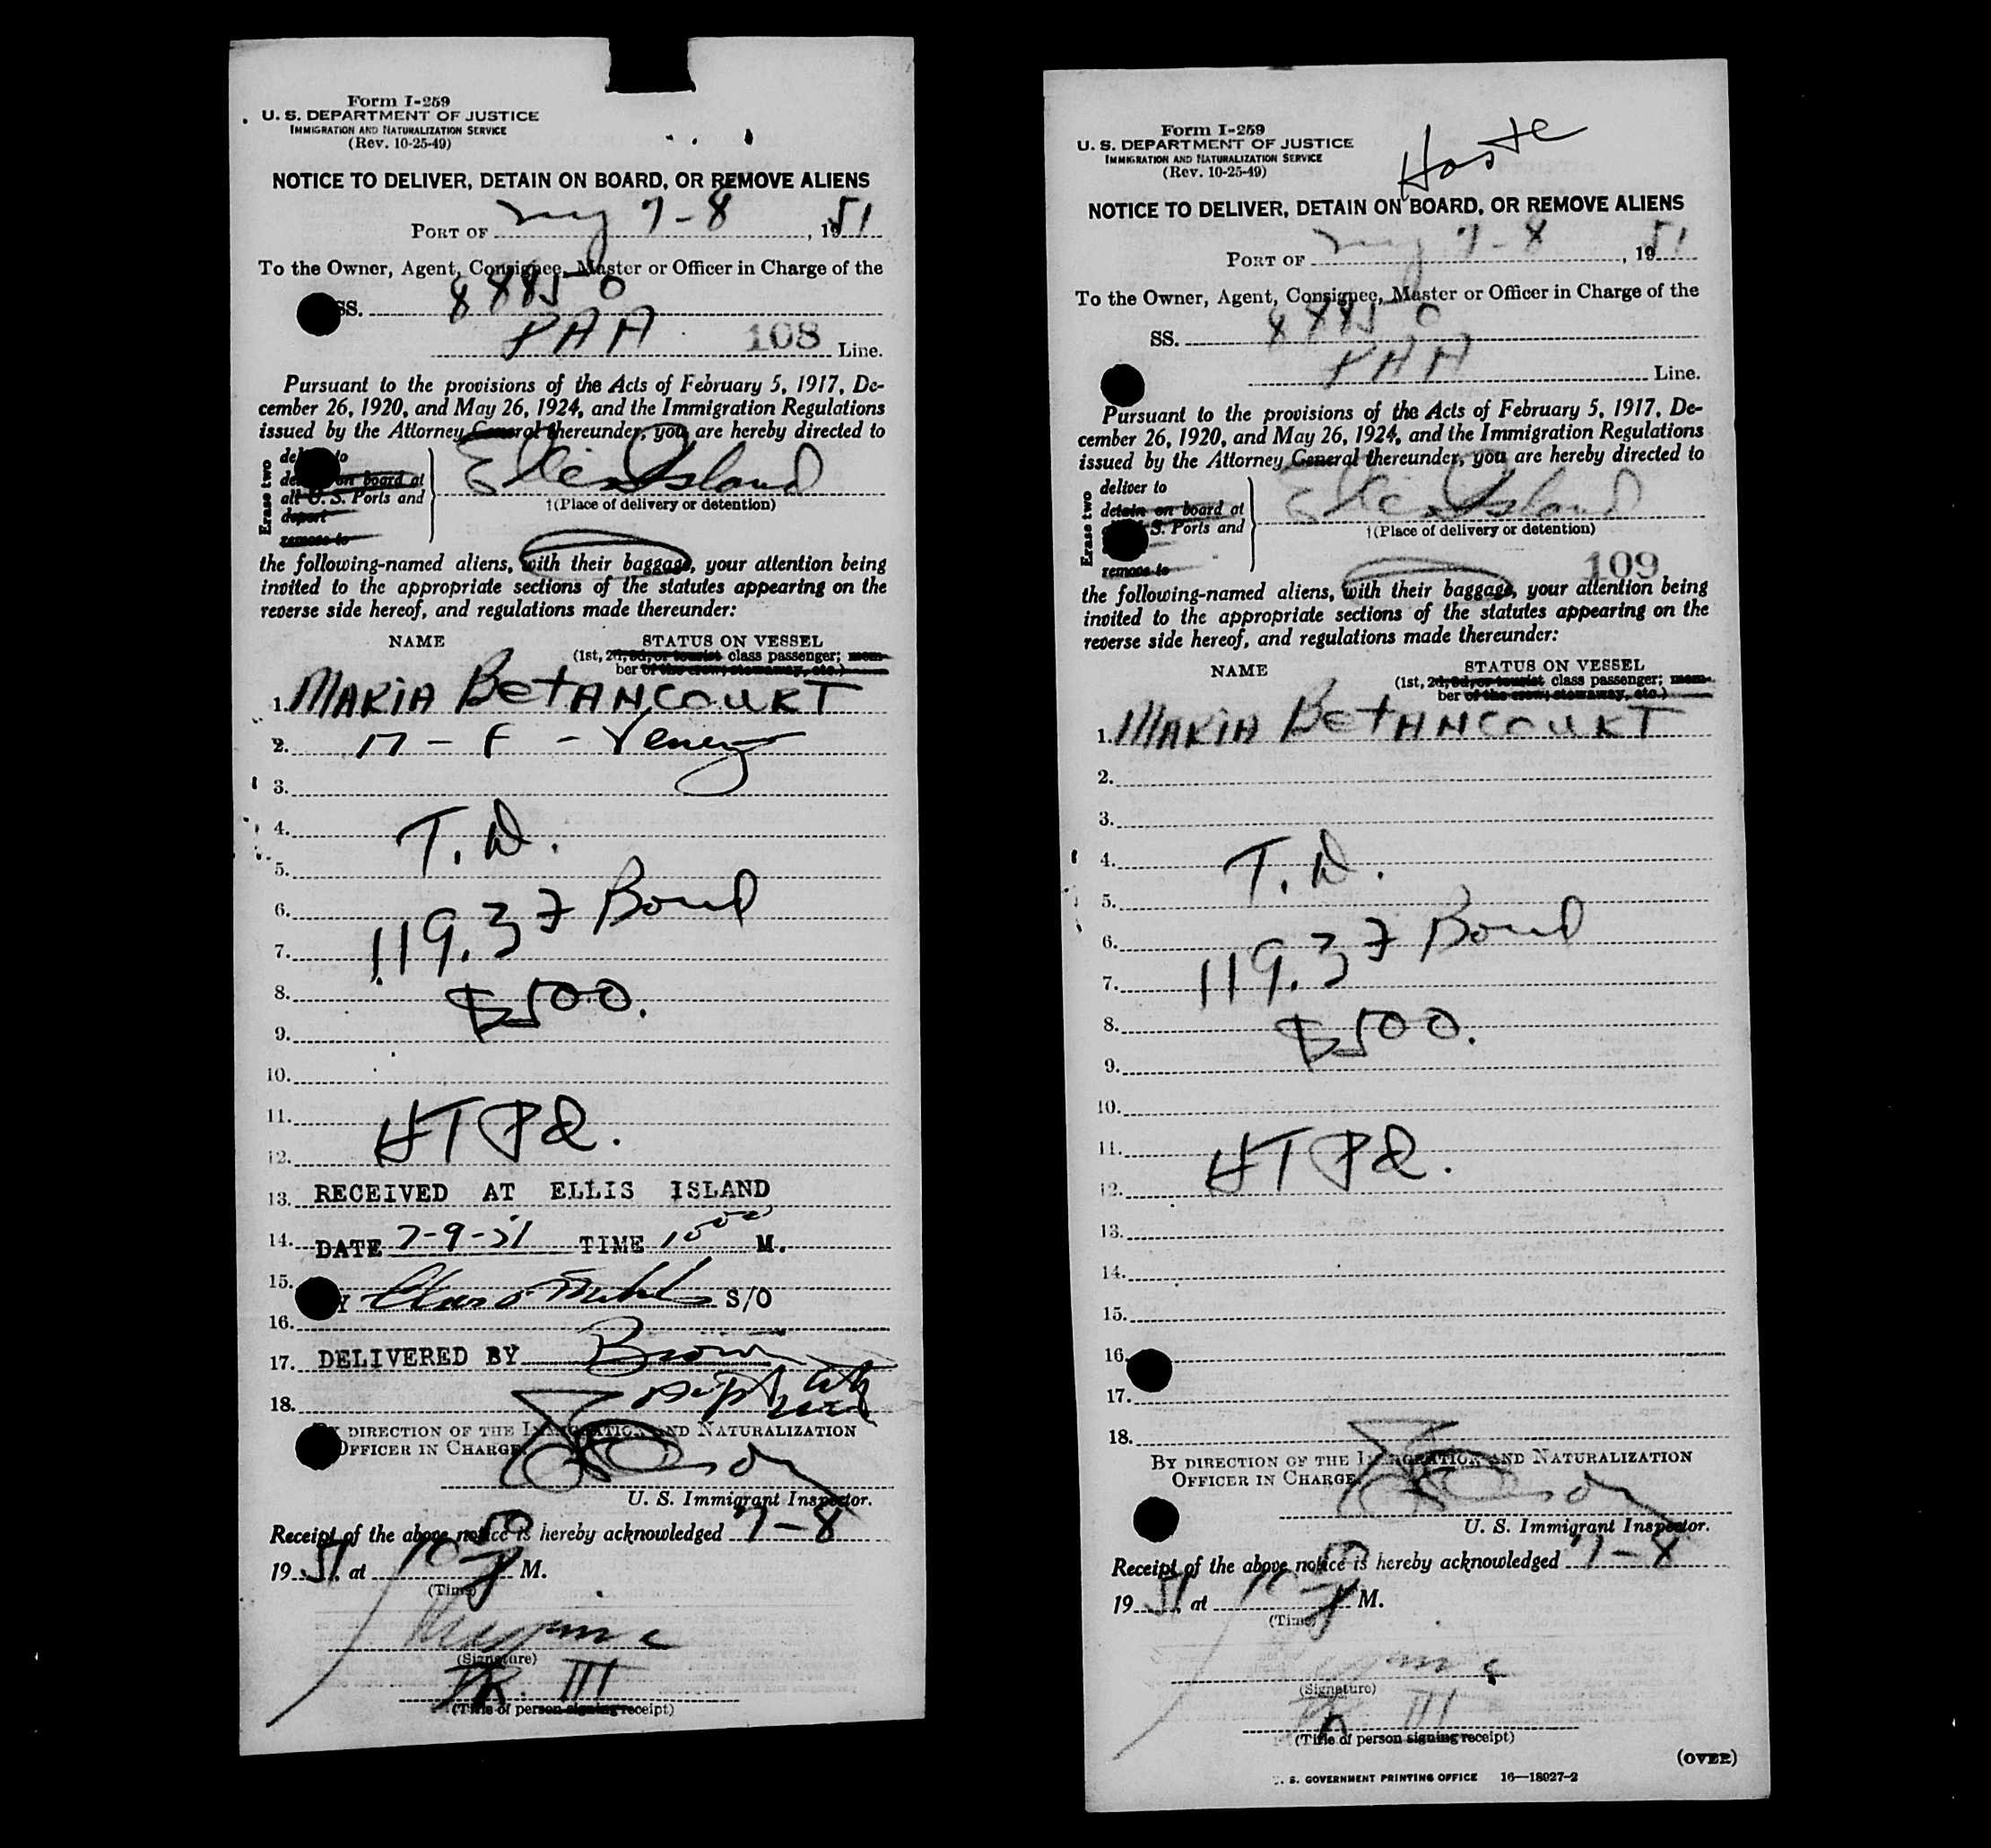 Form I-259
U. S. DEPARTMENT OF JUSTICE
IMMIGRATION AND NATURALIZATION SERVICE
(Rev. 10-25-49)
NOTICE TO DELIVER, DETAIN ON BOARD, OR REMOVE ALIENS
PORT OF ny 7-8, 1951
To the Owner, Agent, Consignee, Master or Officer in Charge of the
SS. 88850
PAA 108 Line.
Pursuant to the provisions of the Acts of February 5, 1917, De-
cember 26, 1920, and May 26, 1924, and the Immigration Regulations
issued by the Attorney General thereunder, you are hereby directed to
Erase two
to
on board at
all U. S. Ports and
deport
remove to
Ellis Island
†(Place of delivery or detention)
the following-named aliens, with their baggage, your attention being
invited to the appropriate sections of the statutes appearing on the
reverse side hereof, and regulations made thereunder:
NAME STATUS ON VESSEL
(1st, 2d, 3d, or tourist class passenger; mem-
ber of the crew; stowaway, etc.)
1. MARIA BETANCOURT
2. 17 - F - Venez
3.
4. T. D.
5.
6. Bond
7. 119.37
8. $500.
9.
10.
11. HTPQ.
12.
13. RECEIVED AT ELLIS ISLAND
14. DATE 7-9-51 TIME M.
15. S/O
16.
17. DELIVERED BY Brown
18.
BY DIRECTION OF THE IMMIGRATION AND NATURALIZATION
OFFICER IN CHARGE
U. S. Immigrant Inspector.
Receipt of the above notice is hereby acknowledged 7-8
1951, at 10 50 M.
(Time)
(Signature)
TR. III
(Title of person signing receipt)
Form I-259
U. S. DEPARTMENT OF JUSTICE
IMMIGRATION AND NATURALIZATION SERVICE
(Rev. 10-25-49)
NOTICE TO DELIVER, DETAIN ON BOARD, OR REMOVE ALIENS
PORT OF ny 7-8, 1951
To the Owner, Agent, Consignee, Master or Officer in Charge of the
SS. 88850
PAA Line.
Pursuant to the provisions of the Acts of February 5, 1917, De-
cember 26, 1920, and May 26, 1924, and the Immigration Regulations
issued by the Attorney General thereunder, you are hereby directed to
Erase two
deliver to
detain on board at
S. Ports and
remove to
Ellis Island
†(Place of delivery or detention)
109
the following-named aliens, with their baggage, your attention being
invited to the appropriate sections of the statutes appearing on the
reverse side hereof, and regulations made thereunder:
NAME STATUS ON VESSEL
(1st, 2d, 3d, or tourist class passenger; mem-
ber of the crew; stowaway, etc.)
1. MARIA BETANCOURT
2.
3.
4. T. D.
5.
6. Bond
7. 119.37
8. $500.
9.
10.
11. HTPQ.
12.
13.
14.
15.
16.
17.
18.
BY DIRECTION OF THE IMMIGRATION AND NATURALIZATION
OFFICER IN CHARGE
U. S. Immigrant Inspector.
Receipt of the above notice is hereby acknowledged 7-8
1951, at 10 50 M.
(Time)
(Signature)
TR. III
(Title of person signing receipt)
(OVER)
U. S. GOVERNMENT PRINTING OFFICE 16—18027-2